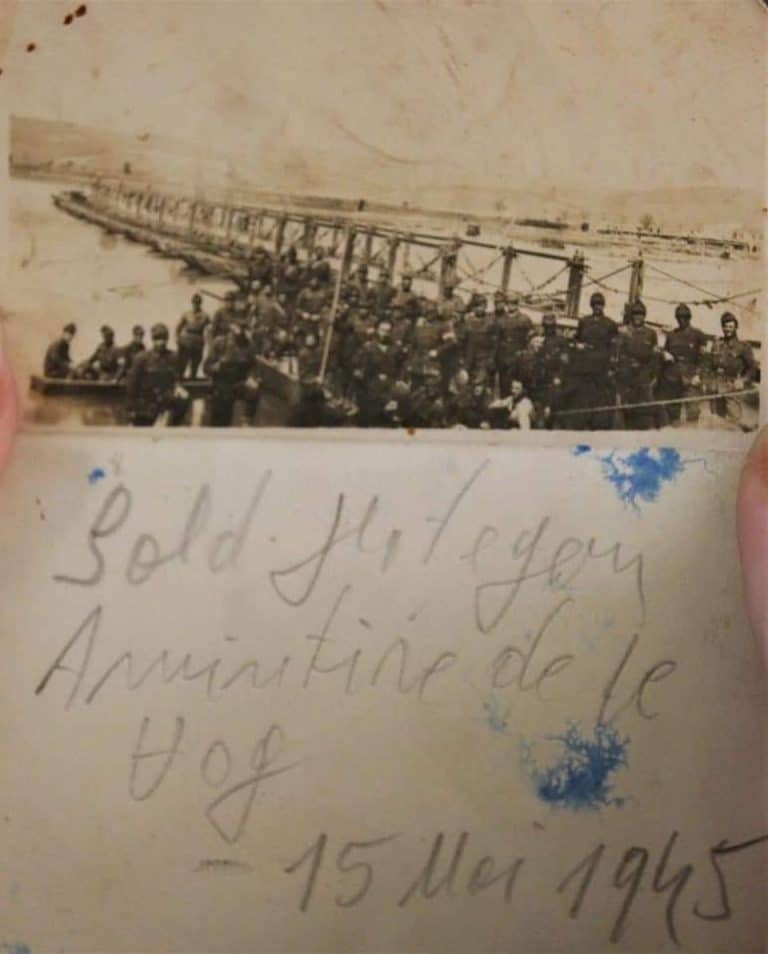 Sold. Hategan
Amintire de la
Vag
- 15 Mai 1945